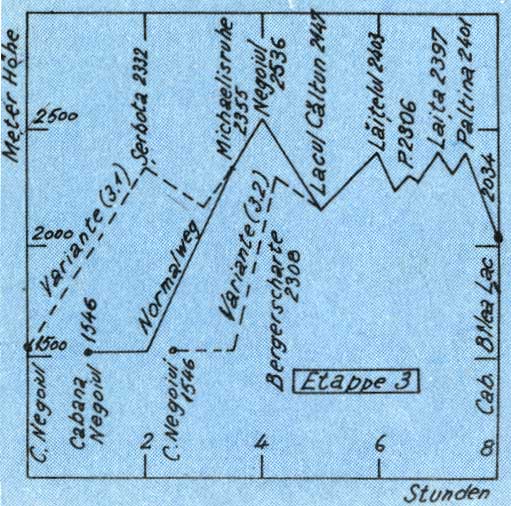 Meter Höhe
2500
2000
1500
Variante (3.1)
Şerbota 2332
Michaelisruhe
2355
Negoiul
2536
Lacul Călţun 2147
Lăiţelul 2403
P.2306
Laiţa 2397
Paltina 2401
2034
Normalweg
Variante (3.2)
Bergerscharte
2308
C. Negoiul
1546
Cabana
Negoiul
C. Negoiul
1546
Etappe 3
Cab. Bîlea Lac
2
4
6
8
Stunden